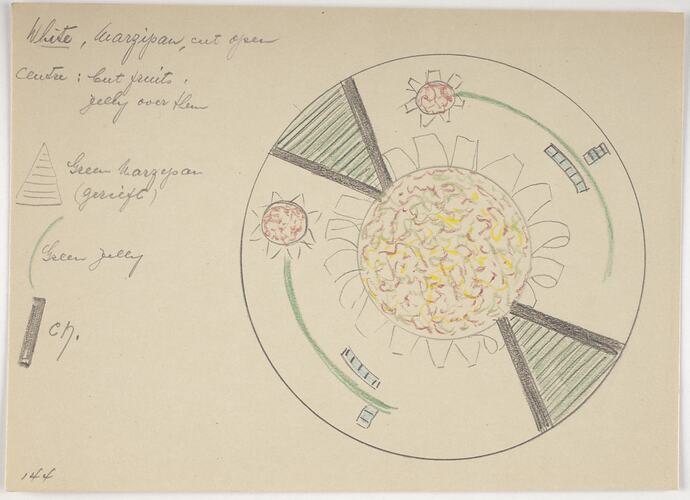 White, Marzipan, cut open
Centre: Cut fruits,
Jelly over them
Green Marzepan
(gerieft)
Green Jelly
Ch.
144